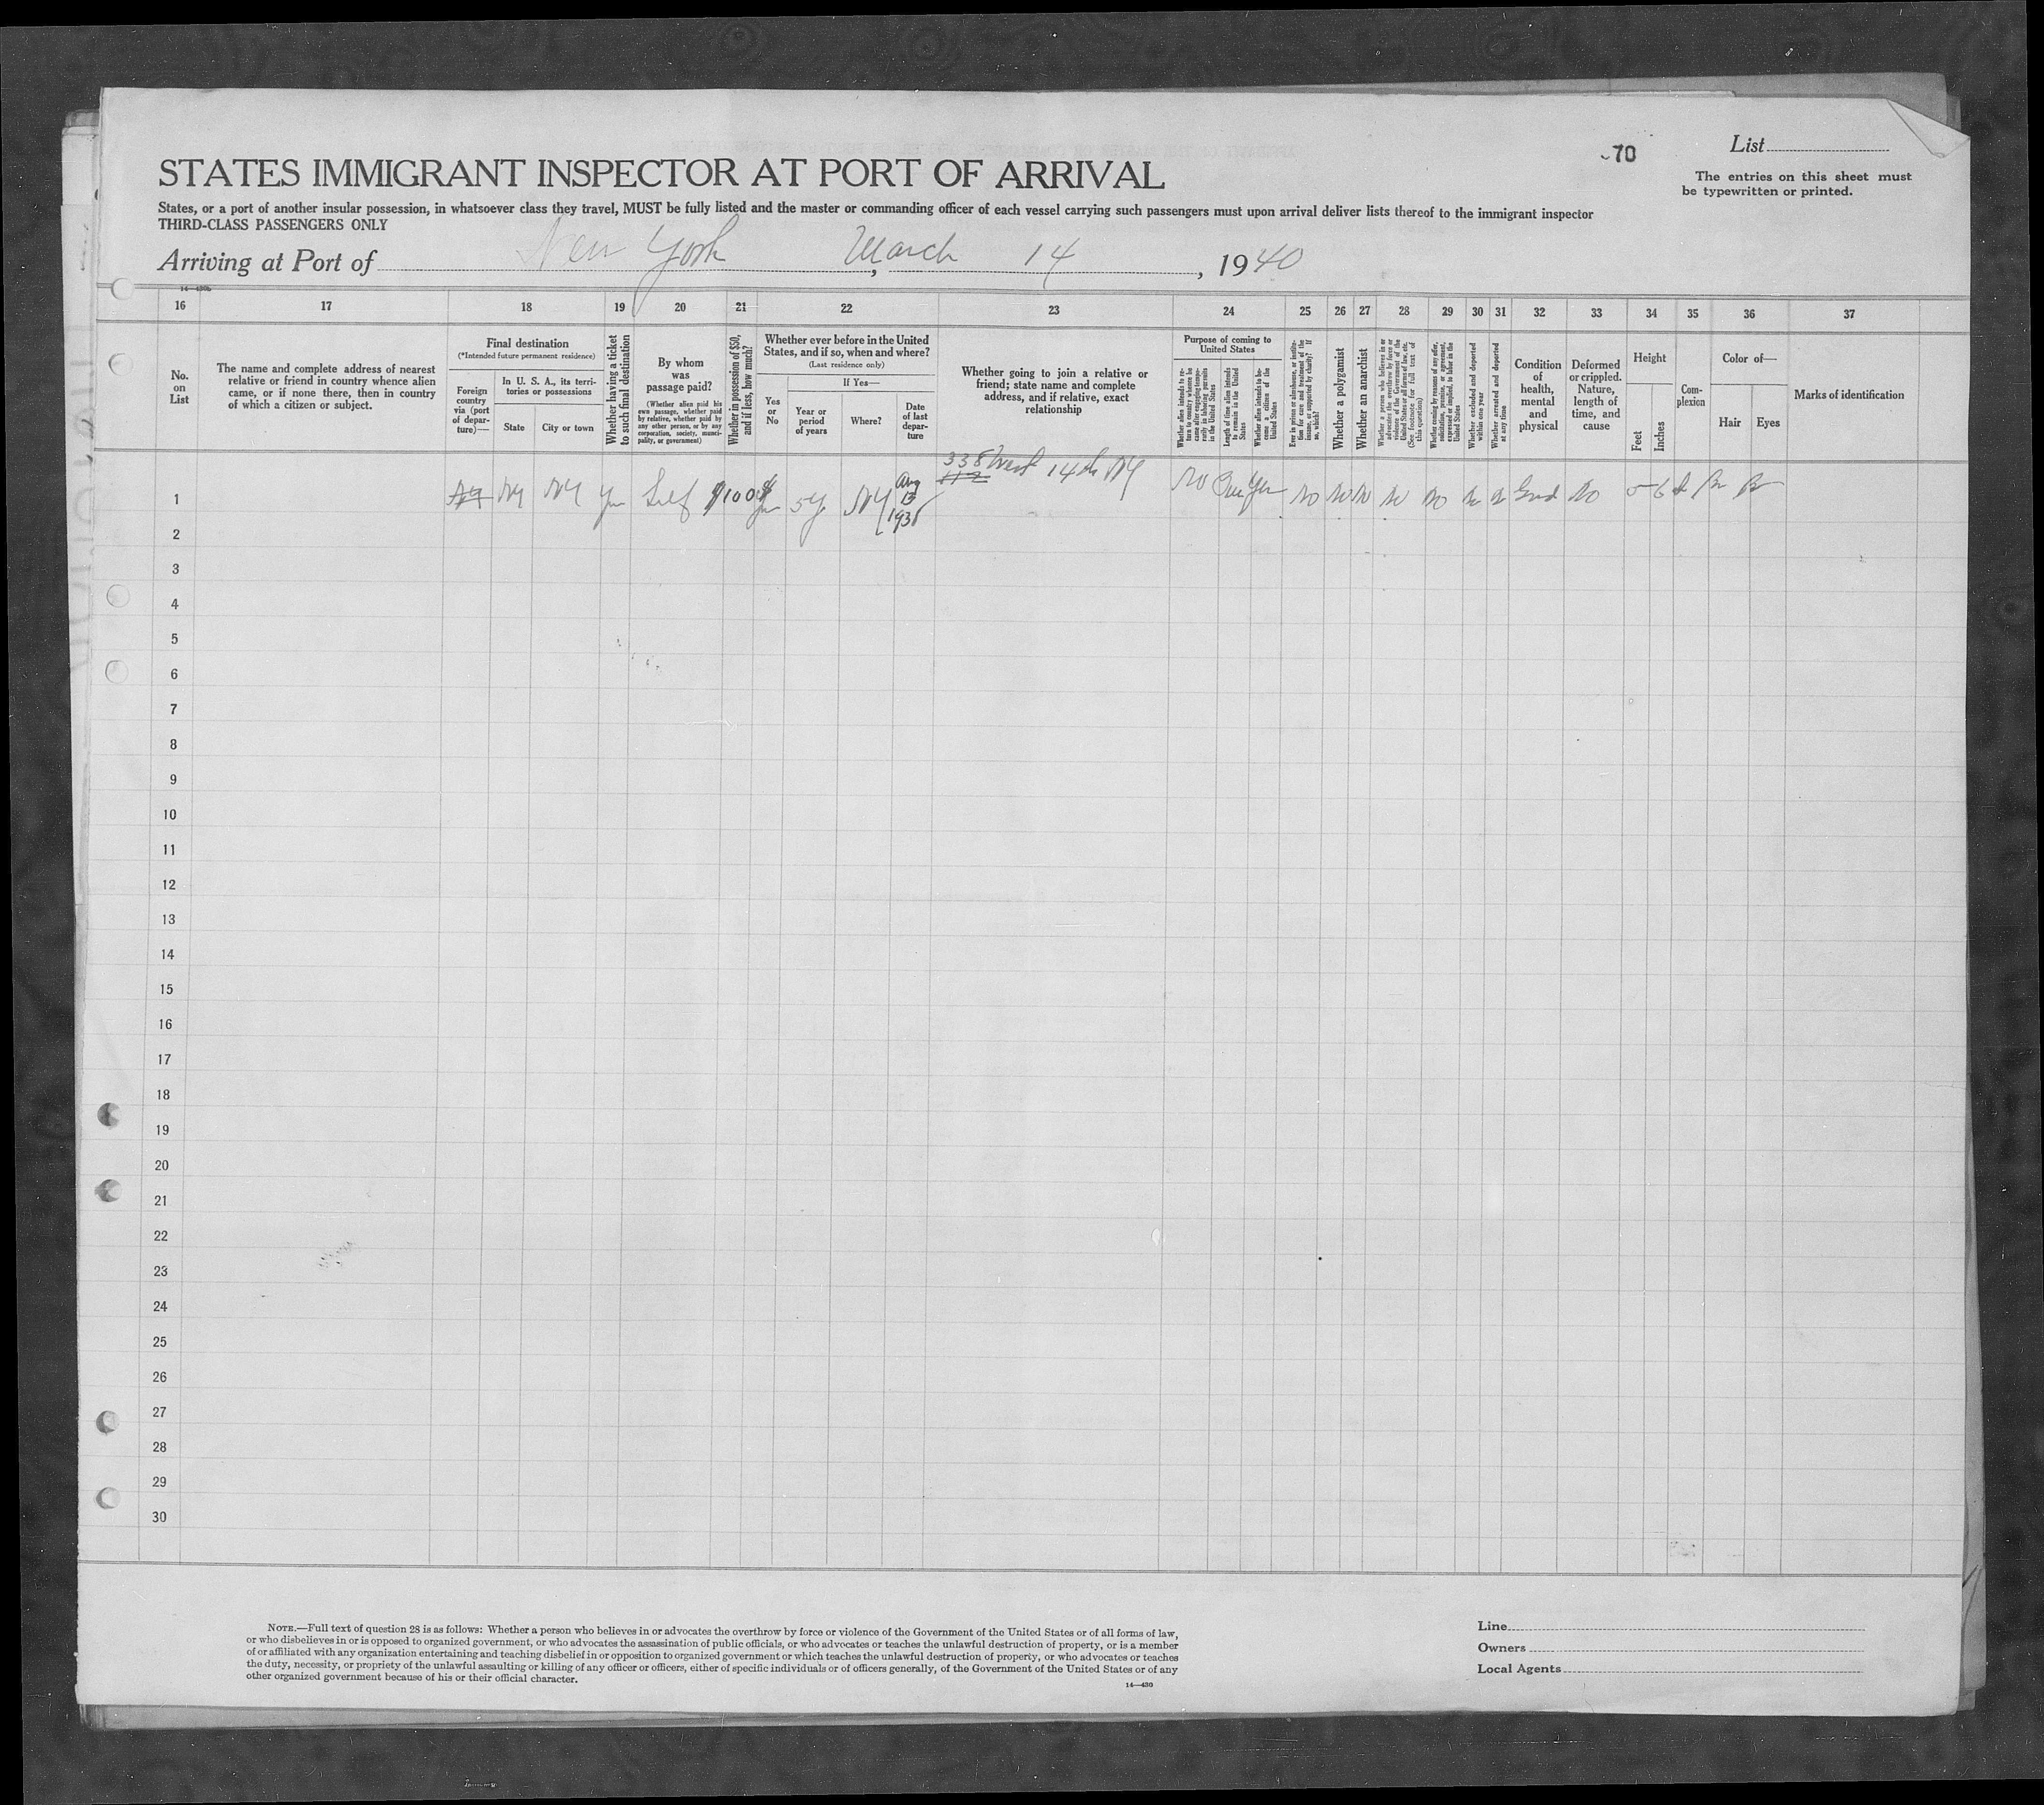 70
List
The entries on this sheet must
be typewritten or printed.
STATES IMMIGRANT INSPECTOR AT PORT OF ARRIVAL
States, or a port of another insular possession, in whatsoever class they travel, MUST be fully listed and the master or commanding officer of each vessel carrying such passengers must upon arrival deliver lists thereof to the immigrant inspector
THIRD-CLASS PASSENGERS ONLY
Arriving at Port of New York, March 14, 1940
16 17 18 19 20 21 22 23 24 25 26 27 28 29 30 31 32 33 34 35 36 37
No.
on
List
The name and complete address of nearest
relative or friend in country whence alien
came, or if none there, then in country
of which a citizen or subject.
Final destination
(*Intended future permanent residence)
Foreign
country
via (port
of depar-
ture)—
In U. S. A., its terri-
tories or possessions
State
City or town
Whether having a ticket
to such final destination
By whom
was
passage paid?
(Whether alien paid his
own passage, whether paid
by relative, whether paid by
any other person, or by any
corporation, society, munici-
pality, or government)
Whether in possession of $50,
and if less, how much?
Whether ever before in the United
States, and if so, when and where?
(Last residence only)
Yes
or
No
If Yes—
Year or
period
of years
Where?
Date
of last
depar-
ture
Whether going to join a relative or
friend; state name and complete
address, and if relative, exact
relationship
Purpose of coming to
United States
Whether alien intends to re-
turn to country whence he
came after engaging tempo-
rarily in laboring pursuits
in the United States
Length of time alien intends
to remain in the United
States
Whether alien intends to be-
come a citizen of the
United States
Ever in prison or almshouse, or institu-
tion for care and treatment of the
insane, or supported by charity? If
so, which?
Whether a polygamist
Whether an anarchist
Whether a person who believes in or
advocates the overthrow by force or
violence of the Government of the
United States or all forms of law, etc.
(See footnote for full text of
this question)
Whether coming by reasons of any offer,
solicitation, promise, or agreement,
expressed or implied, to labor in the
United States
Whether excluded and deported
within one year
Whether arrested and deported
at any time
Condition
of
health,
mental
and
physical
Deformed
or crippled.
Nature,
length of
time, and
cause
Height
Feet
Inches
Com-
plexion
Color of—
Hair
Eyes
Marks of identification
338 West 14th NY
1 NY NY Self $100 5y NY Aug 13 No No No No No No Good No 5 6
2
3
4
5
6
7
8
9
10
11
12
13
14
15
16
17
18
19
20
21
22
23
24
25
26
27
28
29
30
NOTE.—Full text of question 28 is as follows: Whether a person who believes in or advocates the overthrow by force or violence of the Government of the United States or of all forms of law,
or who disbelieves in or is opposed to organized government, or who advocates the assassination of public officials, or who advocates or teaches the unlawful destruction of property, or is a member
of or affiliated with any organization entertaining and teaching disbelief in or opposition to organized government or which teaches the unlawful destruction of property, or who advocates or teaches
the duty, necessity, or propriety of the unlawful assaulting or killing of any officer or officers, either of specific individuals or of officers generally, of the Government of the United States or of any
other organized government because of his or their official character.
14—430
Line
Owners
Local Agents